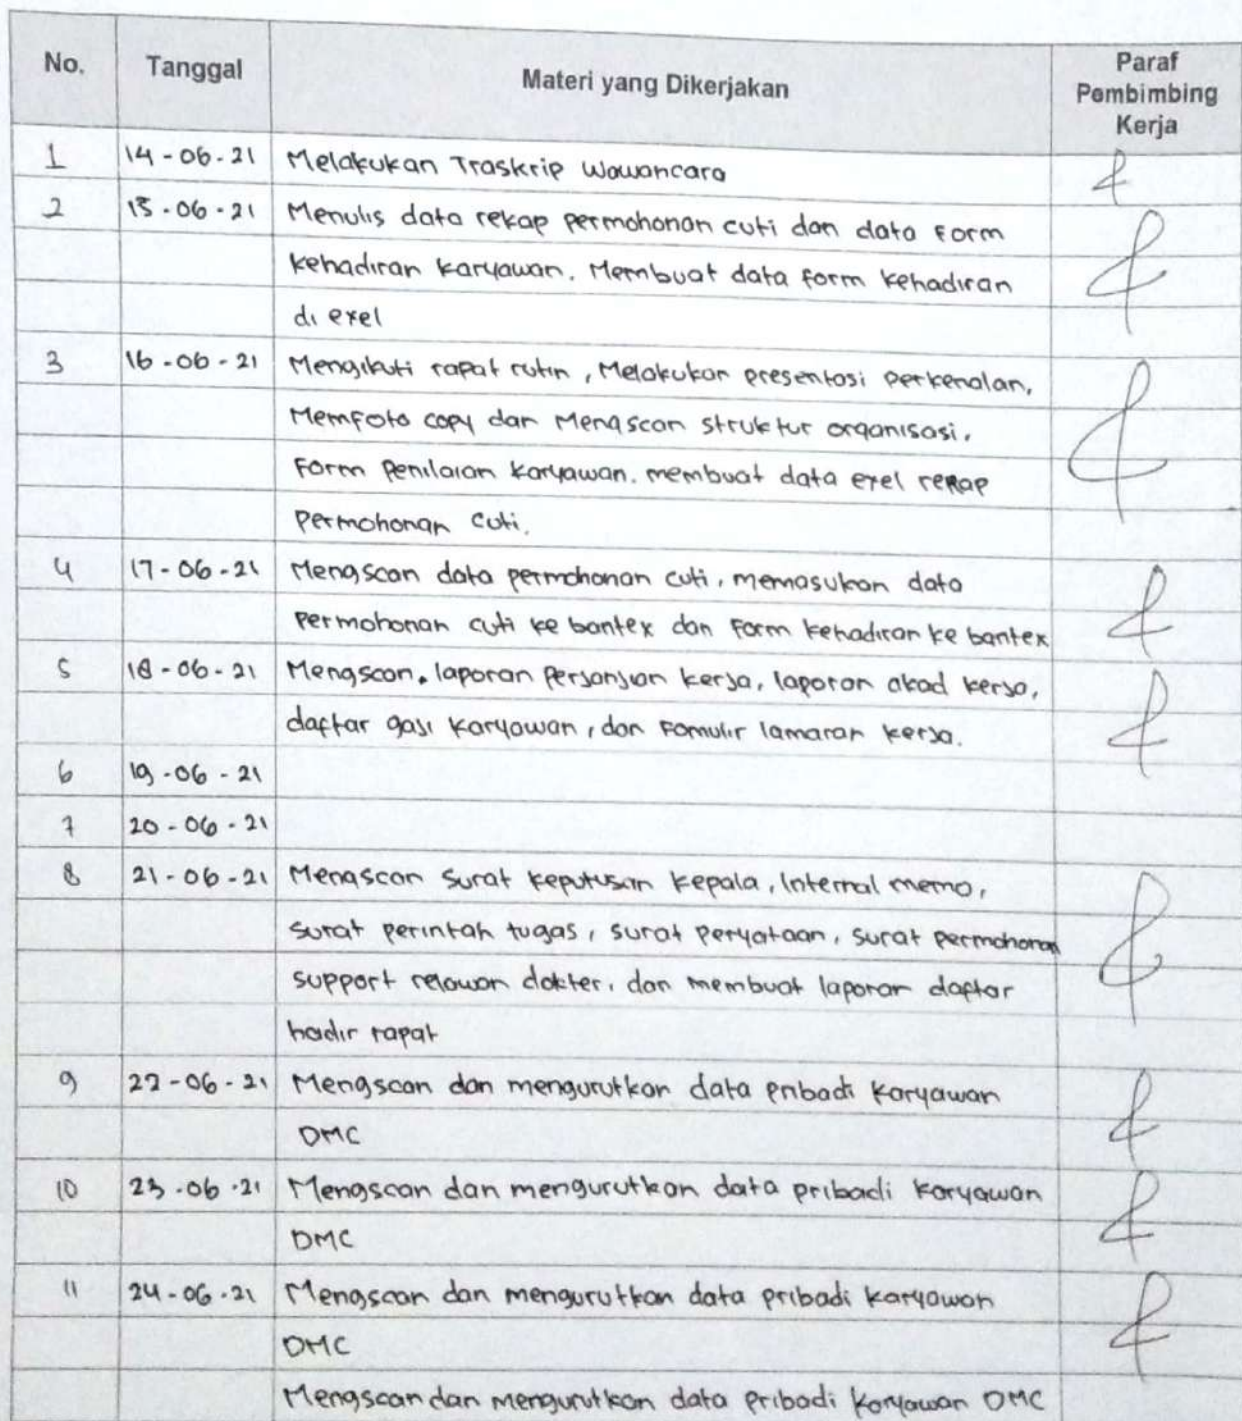 No. Tanggal Materi yang Dikerjakan Paraf Pembimbing Kerja
1 14-06-21 Melakukan Traskrip Wawancara
2 15-06-21 Menulis data rekap permohonan cuti dan data Form
kehadiran karyawan. Membuat data form kehadiran
di exel
3 16-06-21 Mengikuti rapat rutin, Melakukan presentasi perkenalan,
Memfoto copy dan Mengscan struktur organisasi,
Form Penilaian karyawan. membuat data exel rekap
Permohonan cuti.
4 17-06-21 Mengscan data permohonan cuti, memasukan data
Permohonan cuti ke bantex dan Form kehadiran ke bantex
5 18-06-21 Mengscan. laporan Perjanjian kerja, laporan akad kerja,
daftar gaji karyawan, dan Fomulir lamaran kerja.
6 19-06-21
7 20-06-21
8 21-06-21 Mengscan Surat keputusan kepala, Internal memo,
Surat perintah tugas, surat peryataan, surat permohonan
support relawan dokter, dan membuat laporan daftar
hadir rapat
9 22-06-21 Mengscan dan mengurutkan data pribadi karyawan
DMC
10 23-06-21 Mengscan dan mengurutkan data pribadi karyawan
DMC
11 24-06-21 Mengscan dan mengurutkan data pribadi karyawan
DMC
Mengscan dan mengurutkan data pribadi karyawan DMC